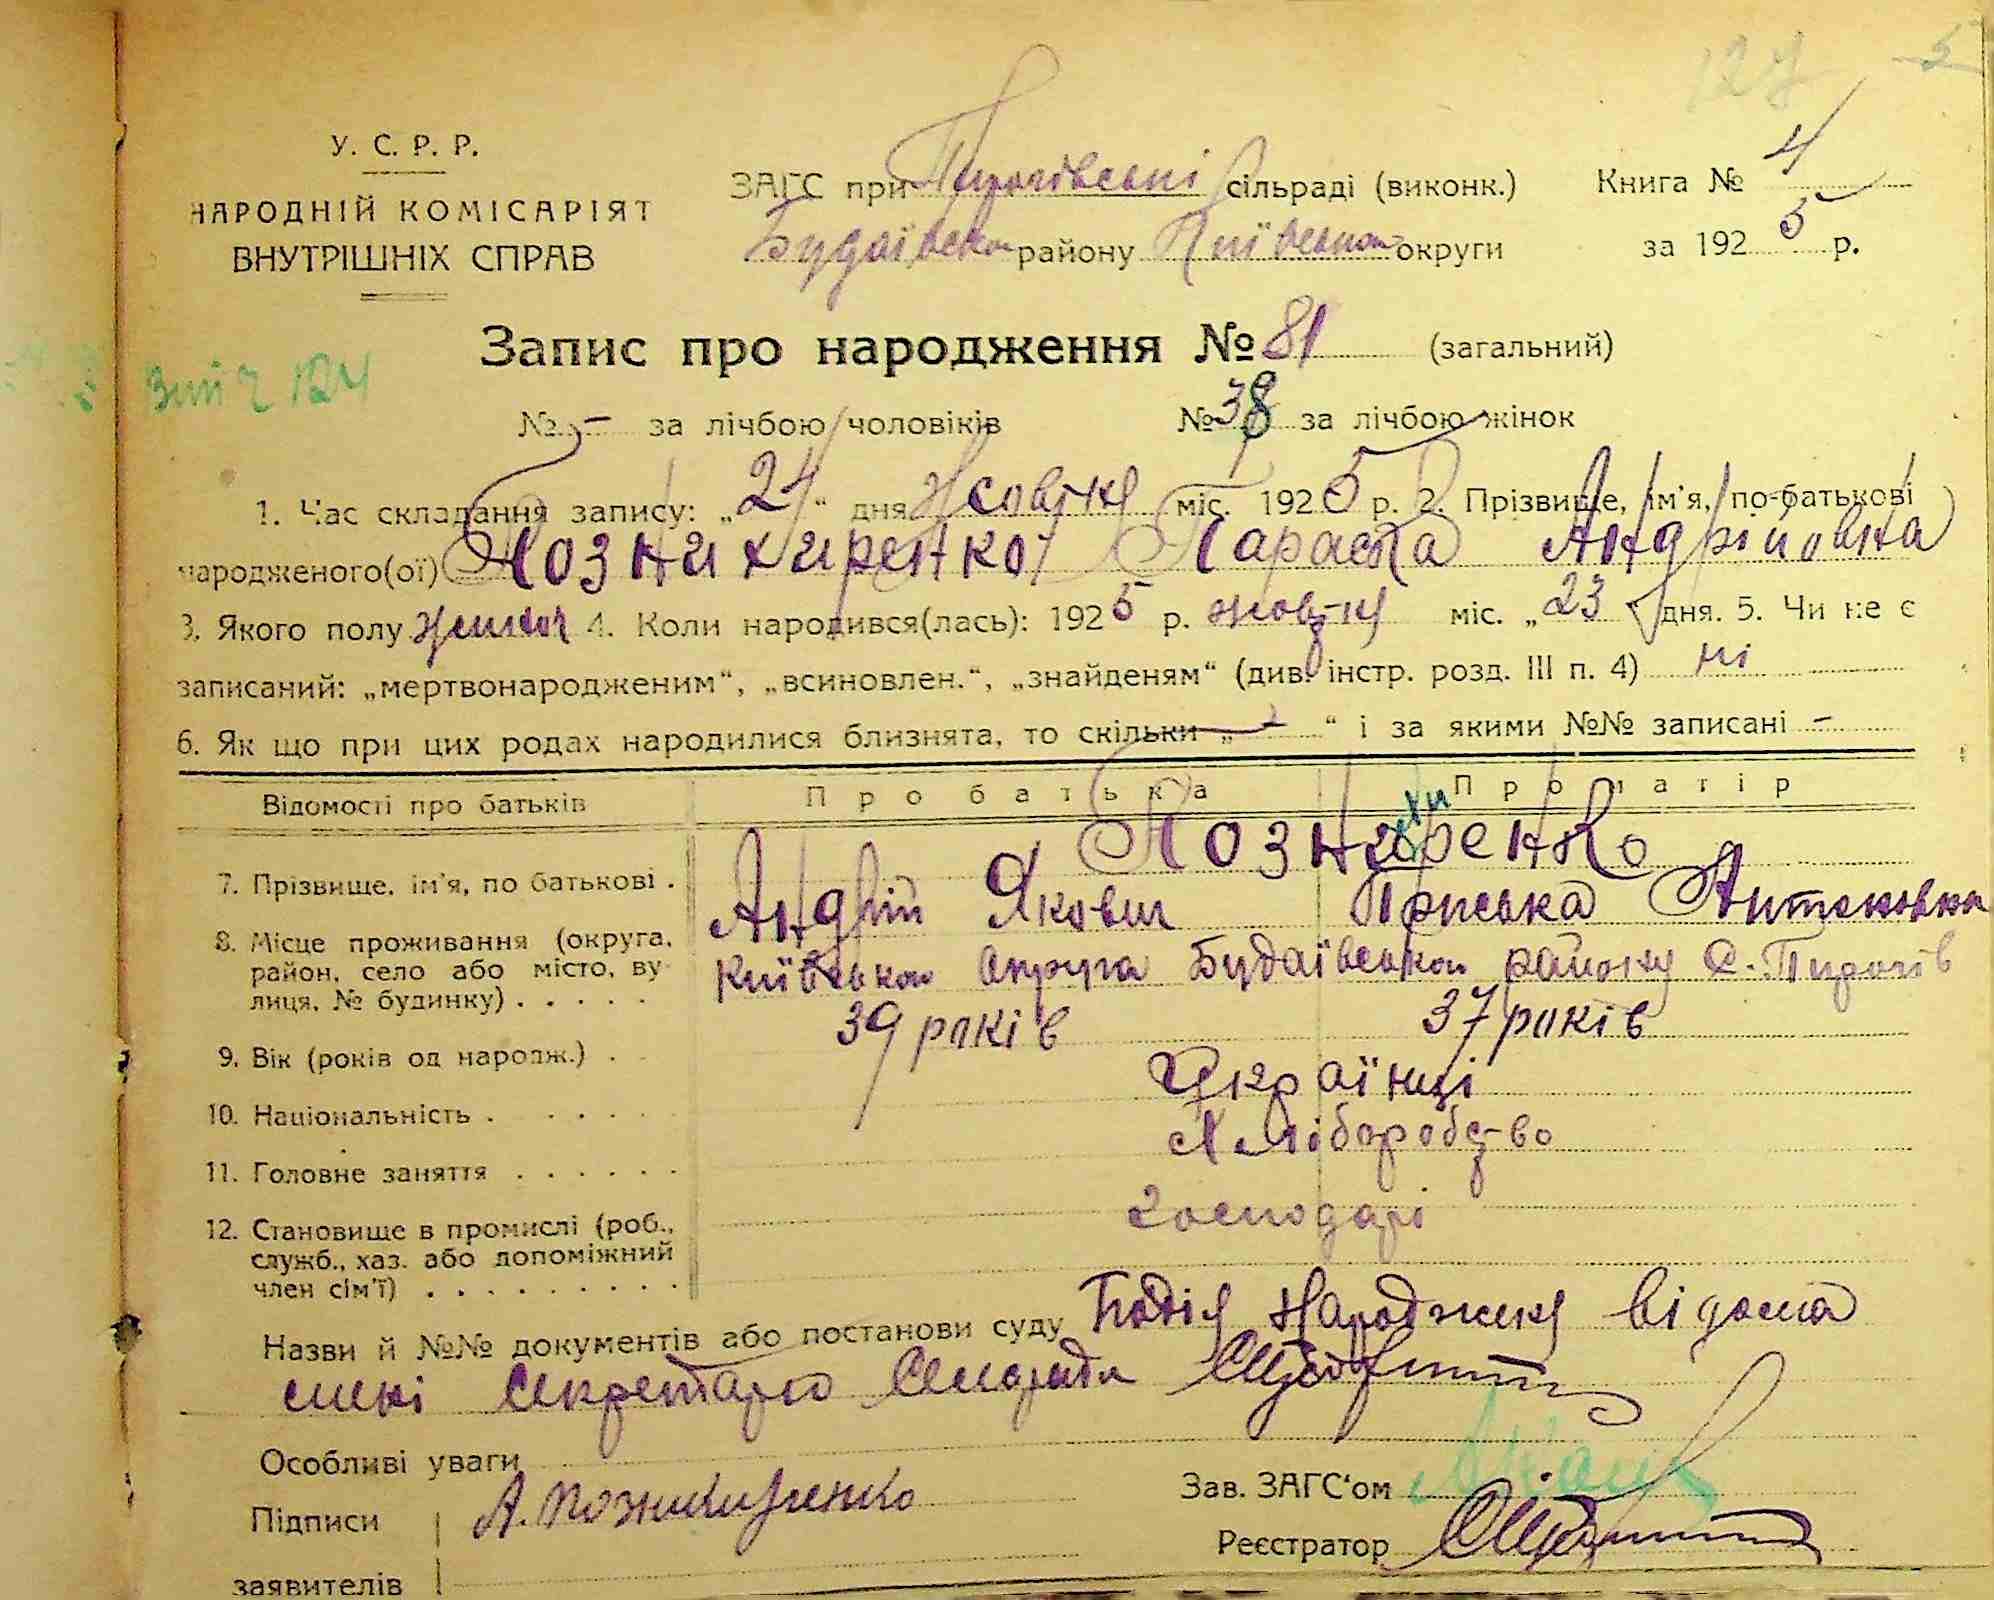 127 5
У. С. Р. Р.
НАРОДНІЙ КОМІСАРІЯТ
ВНУТРІШНІХ СПРАВ
ЗАГС при Пирогівські сільраді (виконк.) Книга № 4
Будаївськ району Київськ округи за 1925 р.
Запис про народження № 81 (загальний)
124
№ - за лічбою чоловіків № 38 за лічбою жінок
1. Час складання запису: „24“ дня Жовтня міс. 1925 р. 2. Прізвище, ім'я, по-батькові
народженого(ої) Познихиренко Параска Андрійовна
3. Якого полу 4. Коли народився(лась): 1925 р. жовтня міс. „23 дня. 5. Чи не є
записаний: „мертвонародженим“, „всиновлен.“, „знайденям“ (див. інстр. розд. III п. 4) ні
6. Як що при цих родах народилися близнята, то скільки „ - “ і за якими №№ записані -
Відомості про батьків Про батька Про матір
7. Прізвище, ім'я, по батькові . Познихиренко
Андрій Якович Приська Антоновна
8. Місце проживання (округа,
район, село або місто, ву-
лиця, № будинку) . . . . . Київськ округа Будаївськой району С. Пирогів
9. Вік (років од народж.) . . 39 років 37 років
10. Національність . . . . . Українці
11. Головне заняття . . . . . . Хліборобство
12. Становище в промислі (роб.,
служб., хаз. або допоміжний
член сім'ї) . . . . . . . . . господарі
Назви й №№ документів або постанови суду Подія народження відома
мені Секретарю Сільради
Особливі уваги
Підписи А. Познихиренко Зав. ЗАГС'ом
заявителів Реєстратор